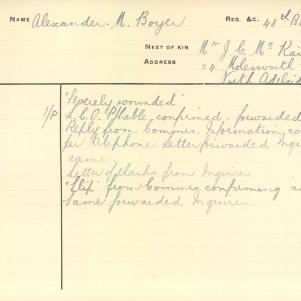 NAME Alexander. M. Boyer REG. &C. 48th B
NEXT OF KIN Mr J. C. Mc
ADDRESS 54. Molesworth
North Adelaid
"Severely wounded"
1/P L.C.A. P/bable confirmed. forwarded
Reply from Commrs. Information, co
per telephone Letter forwarded Inqu
same.
Letter of thanks from Inquirer
"Slip" from Commrs confirming a
same forwarded Inquirer.